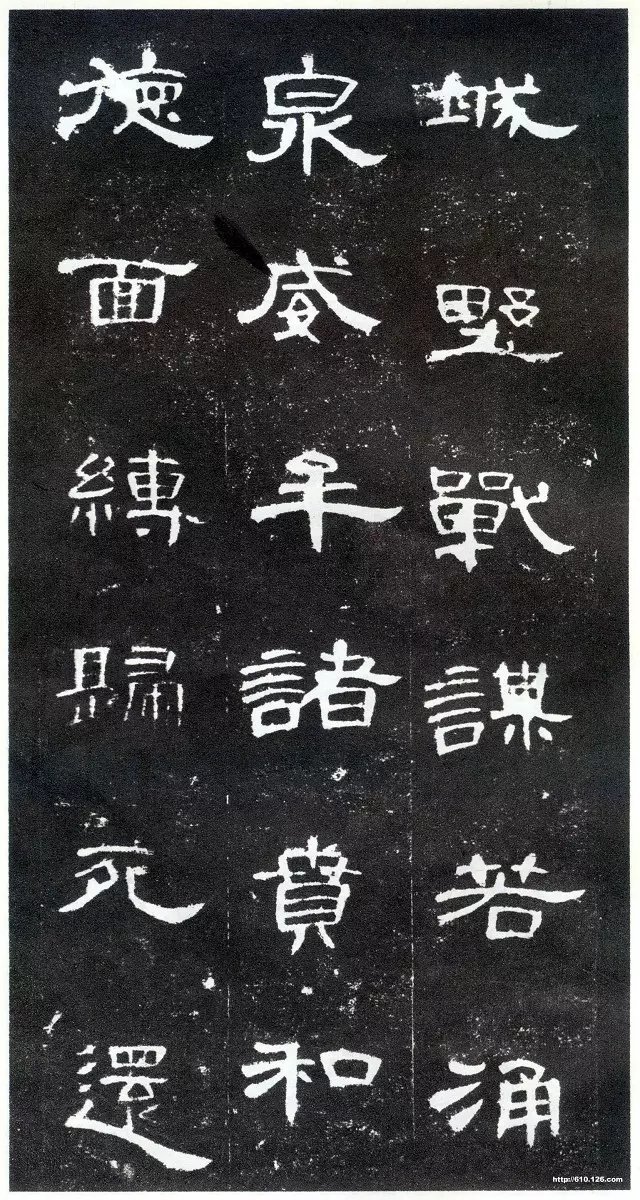 城墅戰謀若涌
泉威牟諸賁和
德面縛歸死還
http://610.126.com